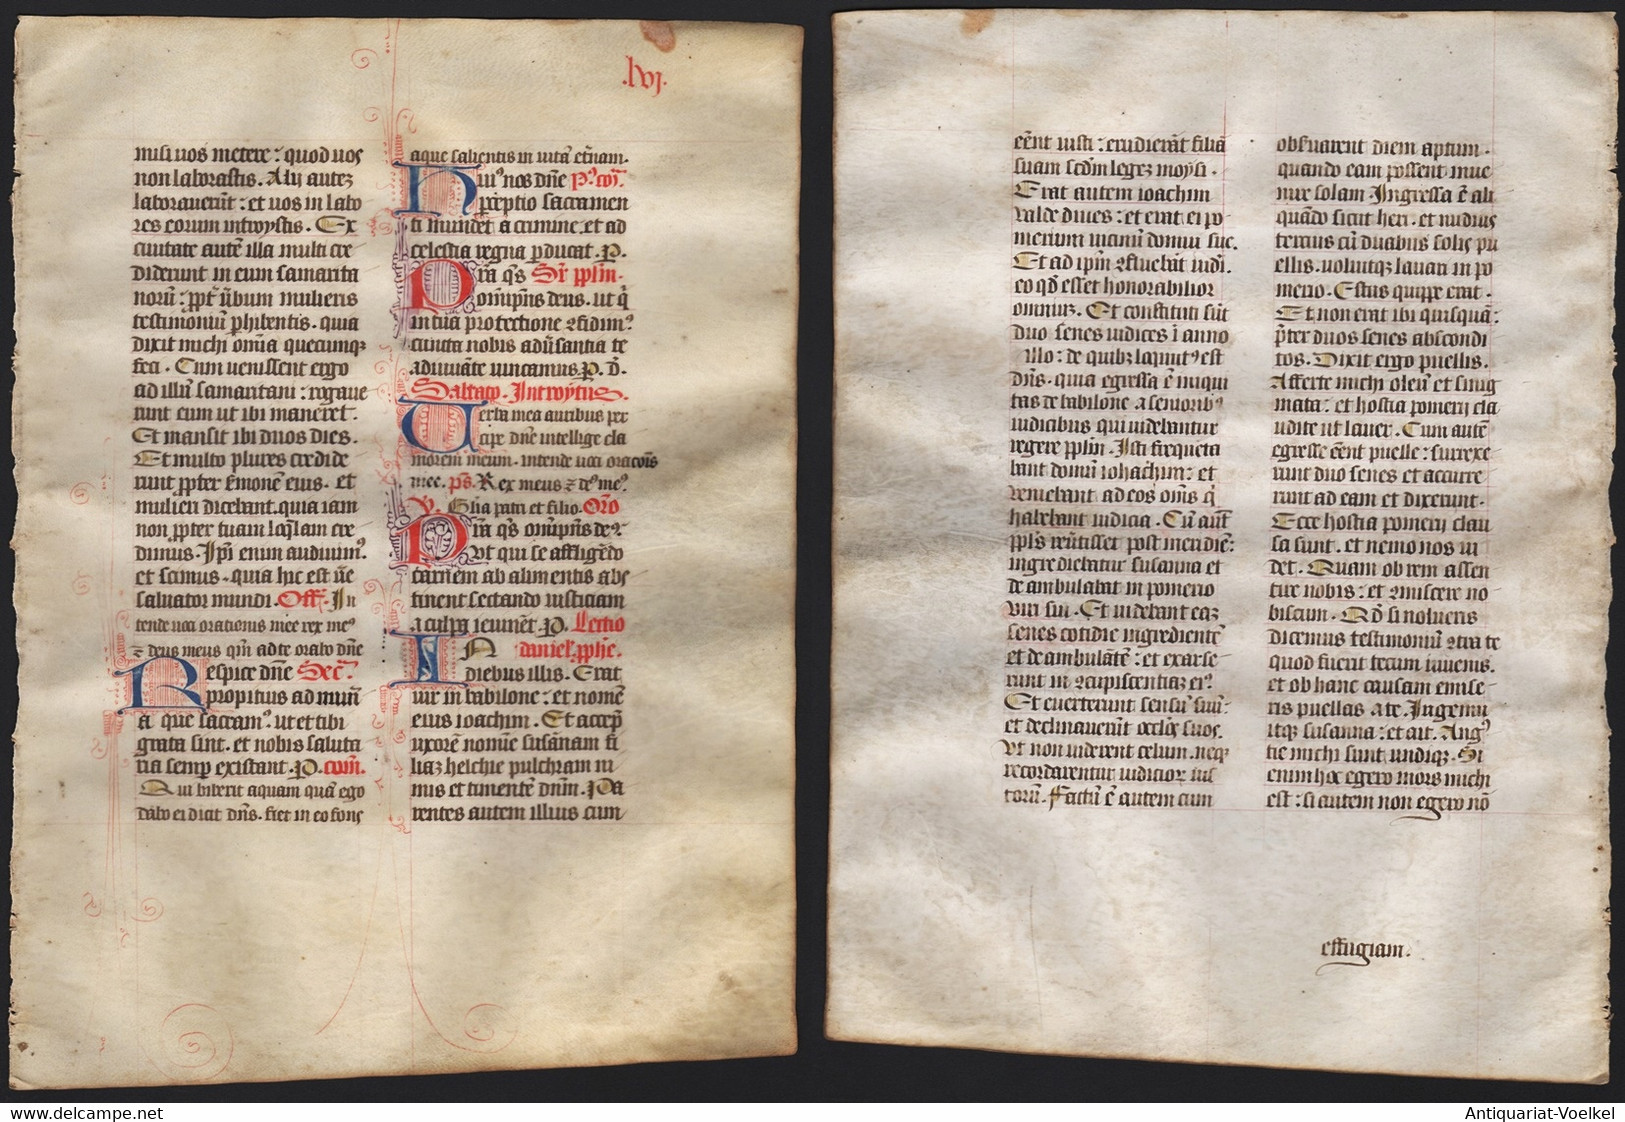 .lvj.
misi vos metere : quod vos
non laborastis . Alij autez
laboraverūt : et vos in labo
res eorum introystis . Ex
civitate autē illa multi cre
diderunt in eum samarita
norū : ꝓpt᷒ v̄bum mulieris
testimoniū ꝑhibentis . quia
dixit michi om̄ia quecunqꝫ
feci . Cum venissent ergo
ad illū samaritani : rogave
runt eum ut ibi maneret .
Et mansit ibi duos dies .
Et multo plures credide
runt ꝓpter s̄monē eius . et
mulieri dicebant . quia iam
non ꝓpter tuam loq̄lam cre
dimus . Ip̄i enim audivimꝰ
et scimus . quia hic est v̄e
salvator mundi . Off̄ . In
tende voci orationis mee rex meꝰ
⁊ deus meus qm̄ ad te orabo dn̄e
Respice dn̄e Sec̄.
propitius ad mun̄
a que sacramꝰ . ut et tibi
grata sint . et nobis saluta
ria semꝑ existant . P . com̄.
Qui biberit aquam quā ego
dabo ei dicit dn̄s . fiet in eo fons
aque salientis in vitā et̄nam .
Huiꝰ nos dn̄e P'.com̄.
ꝑceptio sacramen
ti mundet a crimine . et ad
celestia regna ꝑducat . P .
Pr̄a q̄s Sr̄ pplm̄.
om̄ip̄ns deus . ut q̄
in tua protectione ꝯfidimꝰ
cuncta nobis adv̄santia te
adiuvāte vincamus . P . d̄.
Sabbato . Introytus.
Verba mea auribus per
cipe dn̄e intellige cla
morem meum . intende voci orac̄ōis
mee . ps̄. Rex meus ⁊ dꝰs meꝰ.
V. Gl̄ia patri et filio . Or̄o
Pr̄a q̄s om̄ip̄ns deꝰ
vt qui se affligēdo
carnem ab alimentis abs
tinent sectando iusticiam
a culpa ieiunēt . P . Lectio
IN daniel . ꝓph̄e.
diebus illis . Erat
vir in babilone : et nomē
eius ioachim . Et accep̄
uxorē nomīe susānam fi
liaz helchie pulchram ni
mis et timentē dn̄m . Pa
rentes autem illius cum
eēnt iusti : erudierāt filiā
suam scd̄m legez moysi .
Erat autem ioachim
valde dives : et erat ei po
merium vicinū domui sue .
Et ad ip̄m ꝯfluebāt iudi .
eo qd̄ esset honorabilior
omniuz . Et constituti sūt
duo senes iudices ī anno
illo : de quibz loquutꝰ est
dn̄s . quia egressa ē iniqui
tas de babilōne a senioribꝰ
iudicibus qui videbantur
regere pplm̄ . Isti freq̄nta
bant domū iohachim : et
veniebant ad eos om̄s q̄
habebant iudicia . Cū aut̄
ppl̄s rev̄tisset post meridiē :
ingrediebatur susanna et
deambulabat in pomerio
viri sui . Et videbant eaz
senes cotidie ingrediente
et deambulātē : et exarse
runt in ꝯcupiscentiaz eiꝰ .
Et everterunt sensū suū :
et declinaverūt oculos suos .
Vt non viderent celum . neqꝫ
recordarentur iudicioꝝ ius
torū . Factū ē autem cum
observarent diem aptum .
quando eam possent inve
nire solam . Ingressa ē ali
quādo sicut heri . et nudius
tercius cū duabus solis pu
ellis . voluitqꝫ lavari in po
merio . Estus quippe erat .
Et non erat ibi quisquā :
p̄ter duos senes abscondi
tos . Dixit ergo puellis .
Afferte michi oleū et smig
mata : et hostia pomerij cla
udite ut laver . Cum autē
egresse eēnt puelle : surrexe
runt duo senes et accurre
runt ad eam et dixerunt .
Ecce hostia pomerij clau
sa sunt . et nemo nos vi
det . Quam ob rem assen
tire nobis : et ꝯmiscere no
biscum . Qd̄ si nolueris
dicemus testimoniū ꝯtra te
quod fuerit tecum iuvenis .
et ob hanc causam emise
ris puellas a te . Ingemu
itqꝫ susanna : et ait . Angꝰ
tie michi sunt undiqꝫ . Si
enim hoc egero mors michi
est : si autem non egero nō
effugiam .
Antiquariat-Voelkel